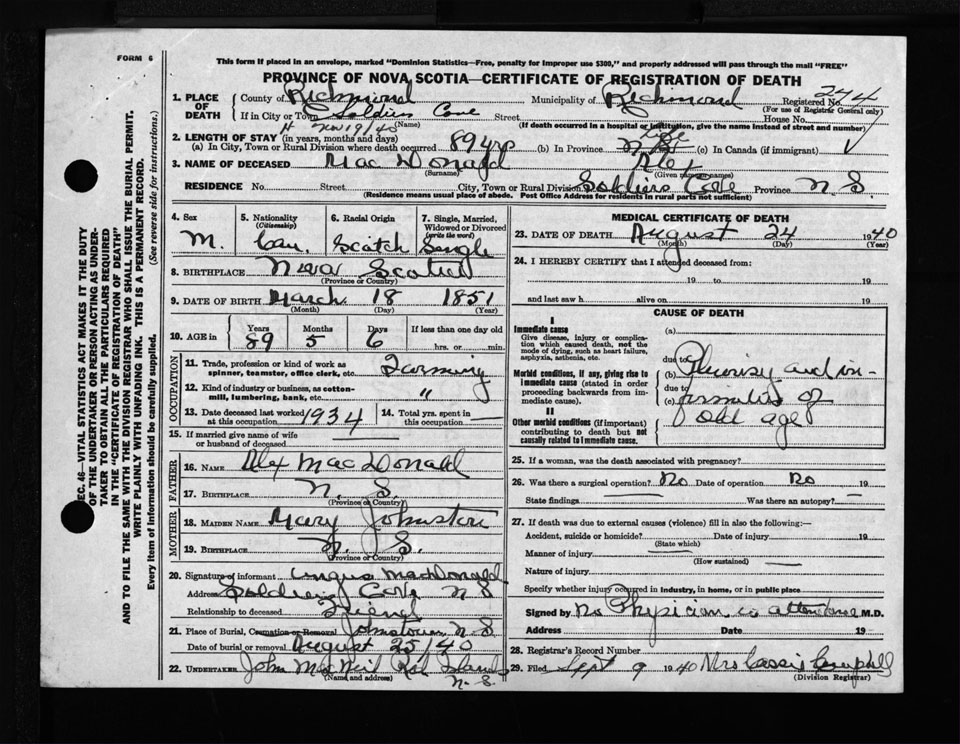 FORM 6
This form if placed in an envelope, marked "Dominion Statistics—Free, penalty for improper use $300," and properly addressed will pass through the mail "FREE"
PROVINCE OF NOVA SCOTIA—CERTIFICATE OF REGISTRATION OF DEATH
1. PLACE OF DEATH
County of Richmond Municipality of Richmond Registered No. 244
(For use of Registrar General only)
If in City or Town Soldiers Cove Street House No.
(Name) (If death occurred in a hospital or institution, give the name instead of street and number)
Nov 19/40
2. LENGTH OF STAY (in years, months and days)
(a) In City, Town or Rural Division where death occurred 89 yrs (b) In Province (c) In Canada (if immigrant)
3. NAME OF DECEASED MacDonald Alex
(Surname) (Given names)
RESIDENCE No. Street City, Town or Rural Division Soldiers Cove Province N S
(Residence means usual place of abode. Post Office Address for residents in rural parts not sufficient)
4. Sex
M.
5. Nationality
(Citizenship)
Can.
6. Racial Origin
Scotch
7. Single, Married, Widowed or Divorced
(write the word)
Single
8. BIRTHPLACE Nova Scotia
(Province or Country)
9. DATE OF BIRTH March 18 1851
(Month) (Day) (Year)
10. AGE in Years Months Days If less than one day old
89 5 6 hrs. or min.
OCCUPATION
11. Trade, profession or kind of work as spinner, teamster, office clerk, etc. Farming
12. Kind of industry or business, as cotton-mill, lumbering, bank, etc. "
13. Date deceased last worked at this occupation 1934
14. Total yrs. spent in this occupation
15. If married give name of wife or husband of deceased
FATHER
16. NAME Alex MacDonald
17. BIRTHPLACE N. S.
(Province or Country)
MOTHER
18. MAIDEN NAME Mary Johnston
19. BIRTHPLACE N. S.
(Province or Country)
20. Signature of informant Angus MacDonald
Address Soldiers Cove N S
Relationship to deceased Friend
21. Place of Burial, Cremation or Removal Johnstown N S
Date of burial or removal August 25/40
22. UNDERTAKER John MacNeil Red Islands
(Name and address) N. S.
MEDICAL CERTIFICATE OF DEATH
23. DATE OF DEATH August 24 1940
(Month) (Day) (Year)
24. I HEREBY CERTIFY that I attended deceased from:
19 to 19
and last saw h alive on 19
CAUSE OF DEATH
I
Immediate cause (a)
Give disease, injury or complication which caused death, not the mode of dying, such as heart failure, asphyxia, asthenia, etc.
due to
Morbid conditions, if any, giving rise to immediate cause (stated in order proceeding backwards from immediate cause).
(b) Pleurisy and in-
due to
(c) firmities of
old age
II
Other morbid conditions (if important) contributing to death but not causally related to immediate cause.
25. If a woman, was the death associated with pregnancy?
26. Was there a surgical operation? No Date of operation No 19
State findings Was there an autopsy?
27. If death was due to external causes (violence) fill in also the following:—
Accident, suicide or homicide? Date of injury 19
(State which)
Manner of injury
(How sustained)
Nature of injury
Specify whether injury occurred in industry, in home, or in public place
Signed by No Physician in attendance M.D.
Address Date 19
28. Registrar's Record Number
29. Filed Sept 9 1940 Mrs Cassie Campbell
(Division Registrar)
SEC. 46—VITAL STATISTICS ACT MAKES IT THE DUTY
OF THE UNDERTAKER OR PERSON ACTING AS UNDER-
TAKER TO OBTAIN ALL THE PARTICULARS REQUIRED
IN THE "CERTIFICATE OF REGISTRATION OF DEATH"
AND TO FILE THE SAME WITH THE DIVISION REGISTRAR WHO SHALL ISSUE THE BURIAL PERMIT.
WRITE PLAINLY WITH UNFADING INK. THIS IS A PERMANENT RECORD.
Every item of information should be carefully supplied. (See reverse side for instructions.)